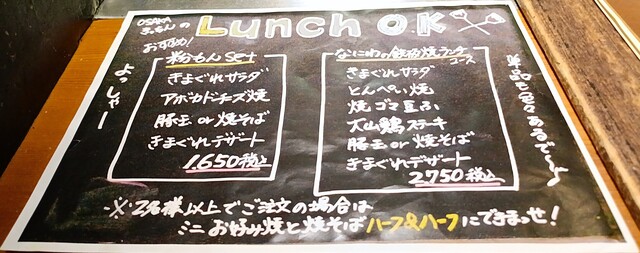 OSAKA
きっちんの
おすすめ!
Lunch O.K
粉もん set
きまぐれサラダ
アボカドチーズ焼
豚玉 or 焼そば
きまぐれデザート
1,650税込
なにわの鉄板焼ランチ
コース
きまぐれサラダ
とんぺい焼
焼ゴマ豆ふ
大山鶏ステーキ
豚玉 or 焼そば
きまぐれデザート
2,750税込
よっしゃー
単品も色々あるでー
※2名様以上でご注文の場合は
ミニお好み焼と焼そばハーフ&ハーフにできまっせ!